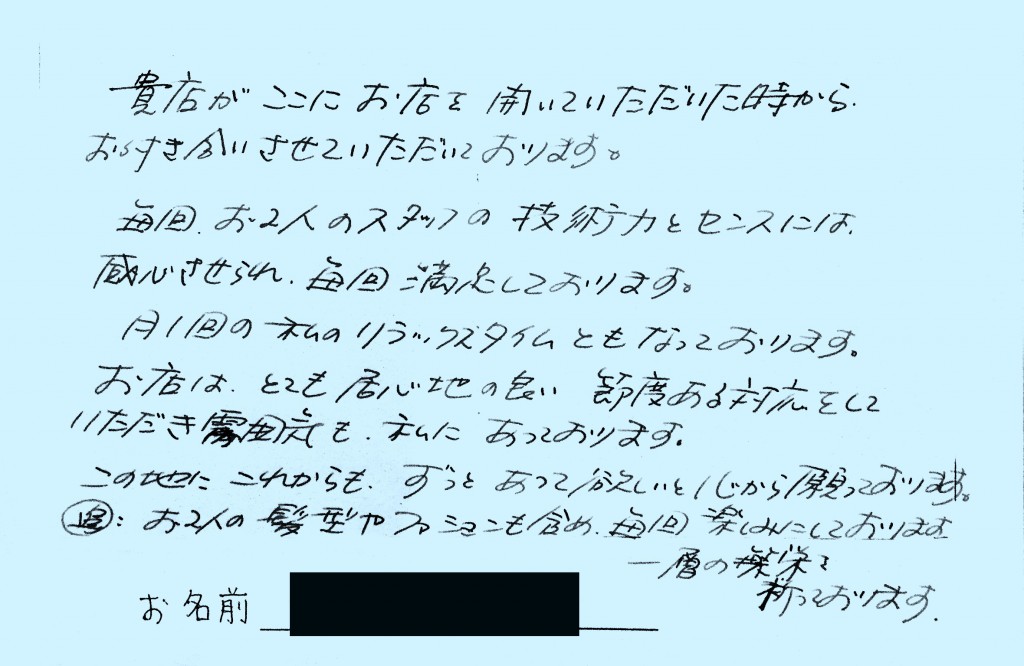 貴店がここにお店を開いていただいた時から、
おつき合いさせていただいております。
毎回、お2人のスタッフの技術力とセンスには、
感心させられ、毎回満足しております。
月1回の私のリラックスタイムともなっております。
お店は、とても居心地の良い節度ある対応をして
いただき雰囲気も、私にあっております。
この地にこれからも、ずっとあって欲しいと心から願っております。
追:お2人の髪型やファションも含め、毎回楽しみにしております
一層の繁栄を
祈っております.
お名前